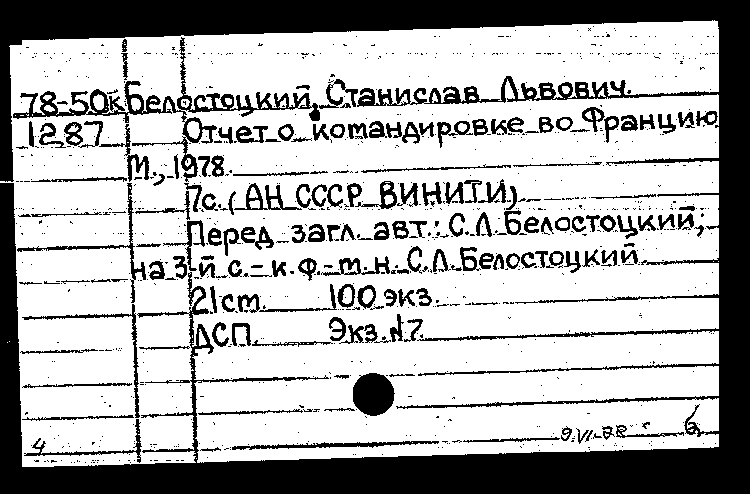 78-50к Белостоцкий, Станислав Львович.
1287 Отчет о командировке во Францию
М., 1978.
7с. (АН СССР ВИНИТИ)
Перед загл. авт.: С.Л. Белостоцкий;
на 3-й с. - к.ф.-м.н. С.Л. Белостоцкий.
21 ст. 100 экз.
ДСП. Экз. №7.
4 9.VI-78